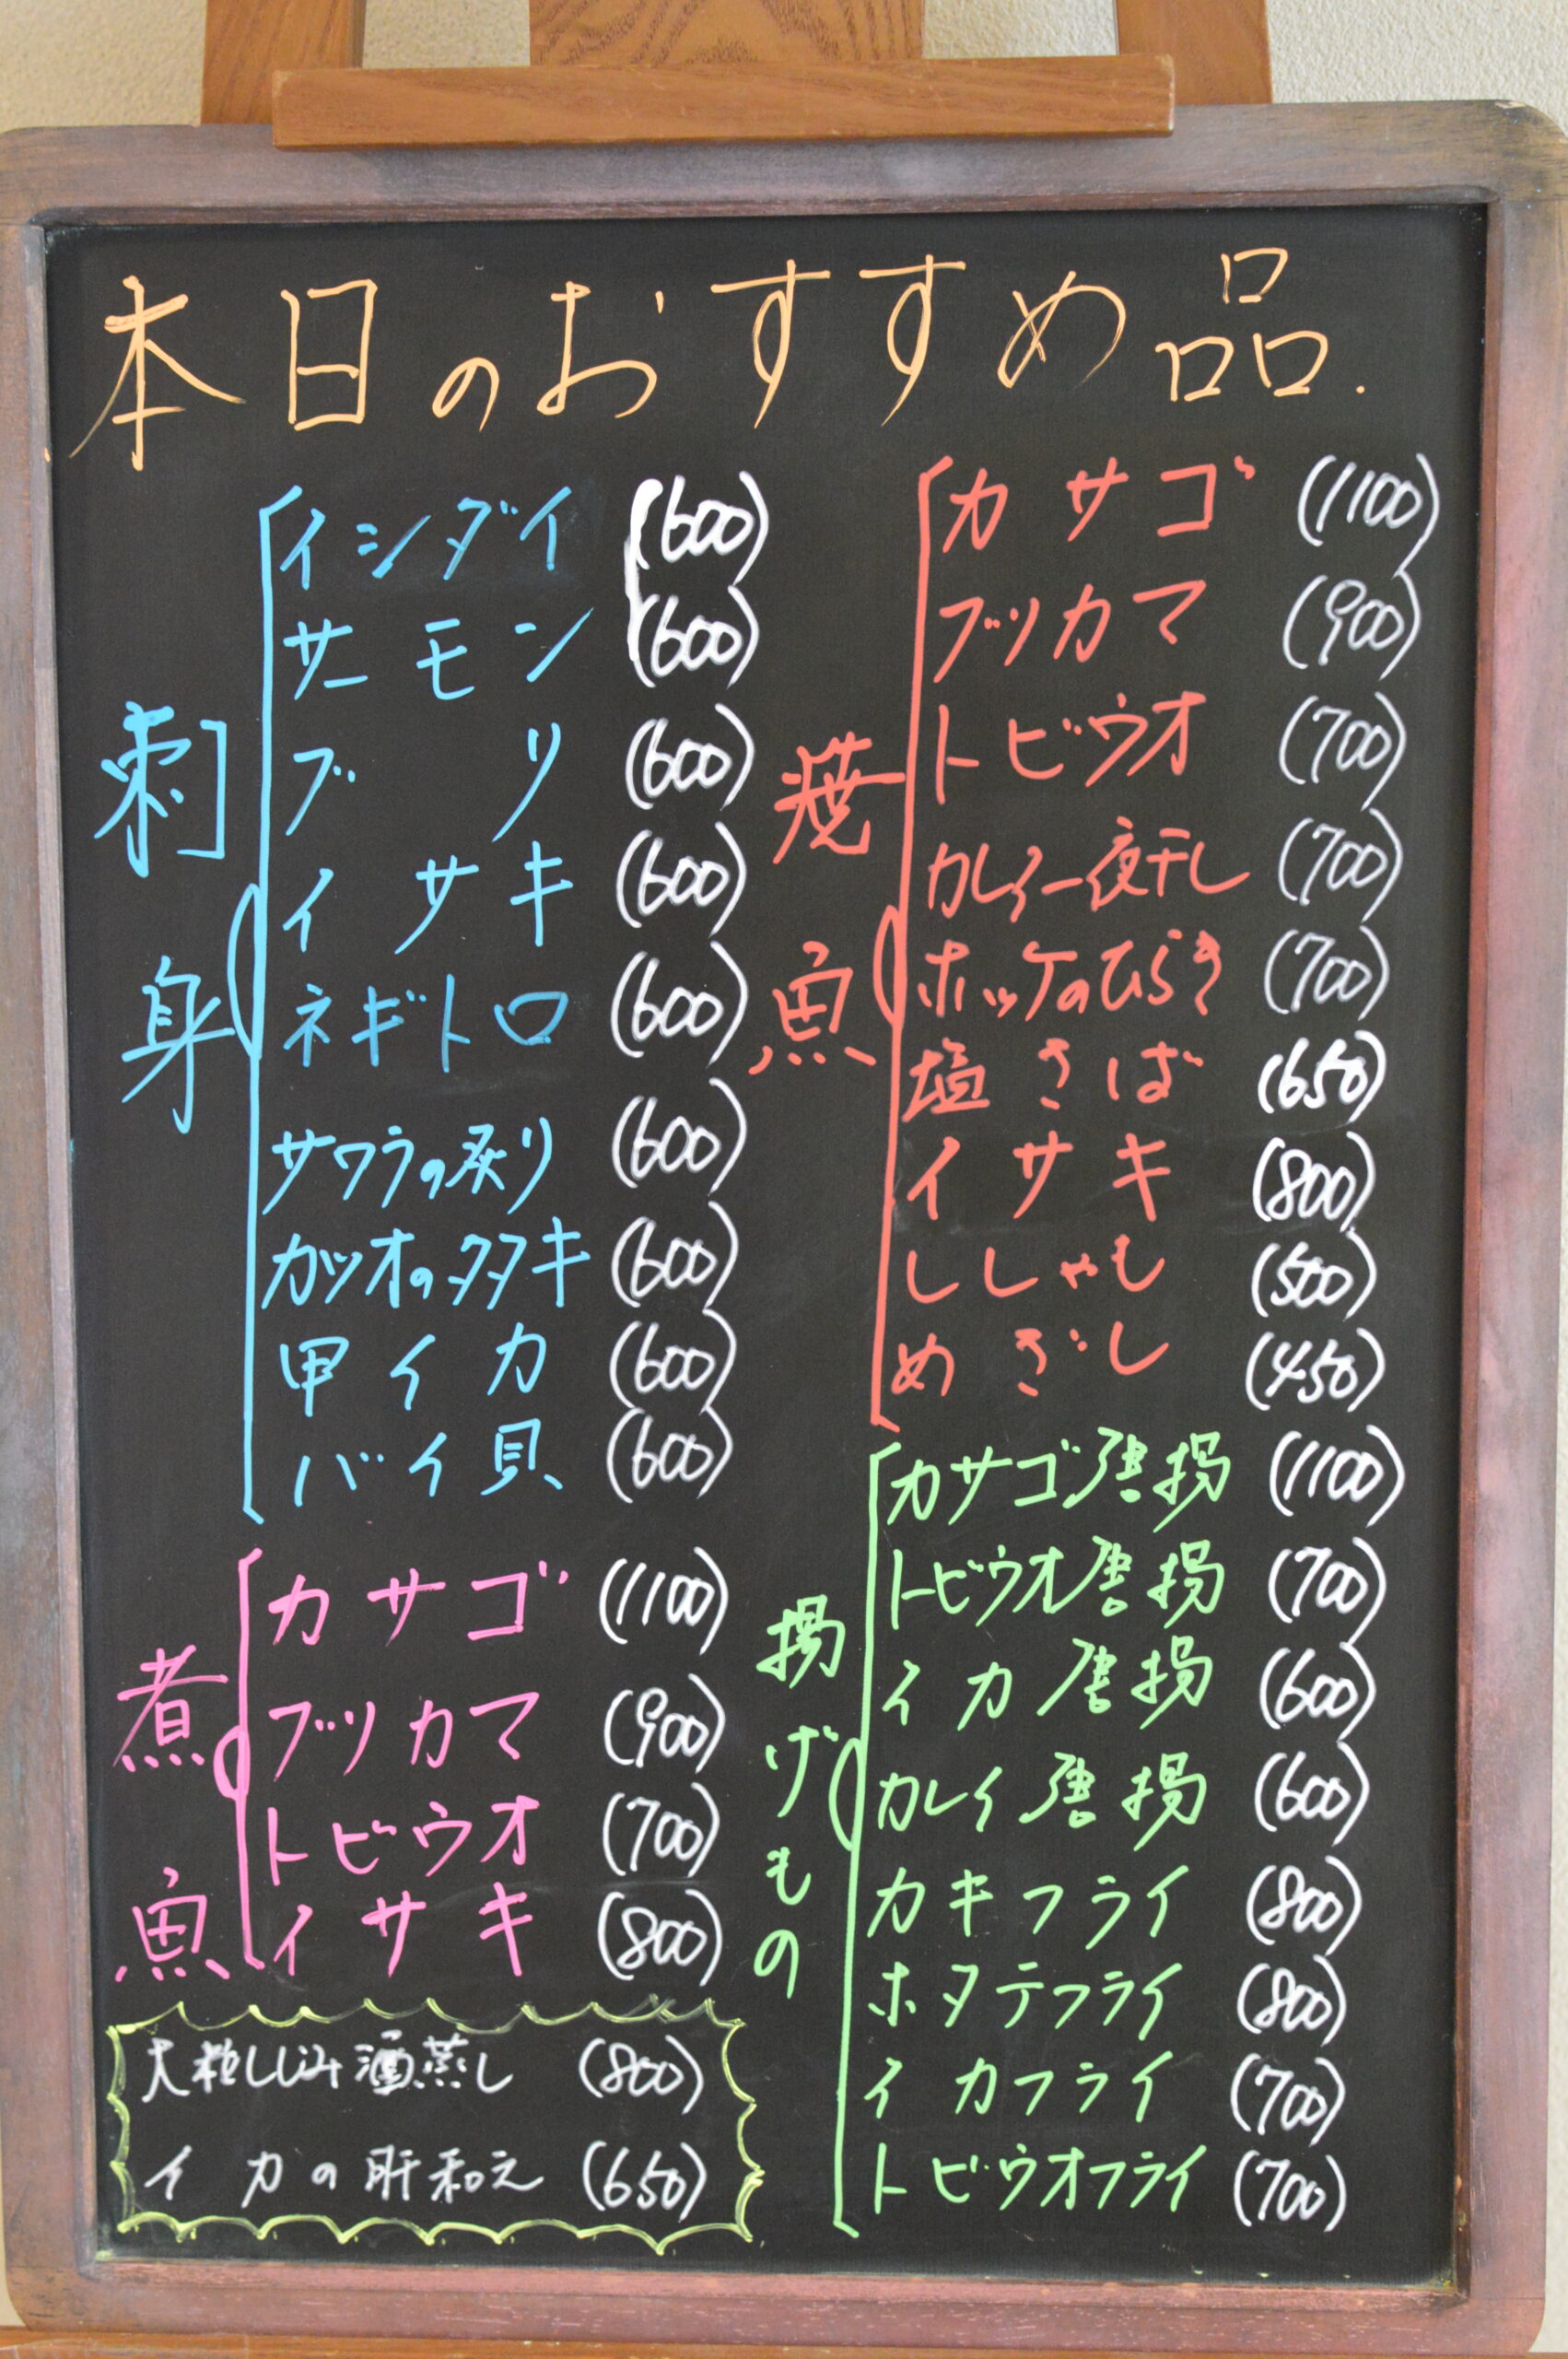 本日のおすすめ品.
刺身
イシダイ (600)
サーモン (600)
ブリ (600)
イサキ (600)
ネギトロ (600)
サワラの炙り (600)
カツオのタタキ (600)
甲イカ (600)
バイ貝 (600)
煮魚
カサゴ (1100)
ブリカマ (900)
トビウオ (700)
イサキ (800)
大粒しじみ酒蒸し (800)
イカの肝和え (650)
焼魚
カサゴ (1100)
ブリカマ (900)
トビウオ (700)
カレイ一夜干し (700)
ホッケのひらき (700)
塩さば (650)
イサキ (800)
ししゃも (500)
めざし (450)
揚げもの
カサゴ唐揚 (1100)
トビウオ唐揚 (700)
イカ唐揚 (600)
カレイ唐揚 (600)
カキフライ (800)
ホタテフライ (800)
イカフライ (700)
トビウオフライ (700)